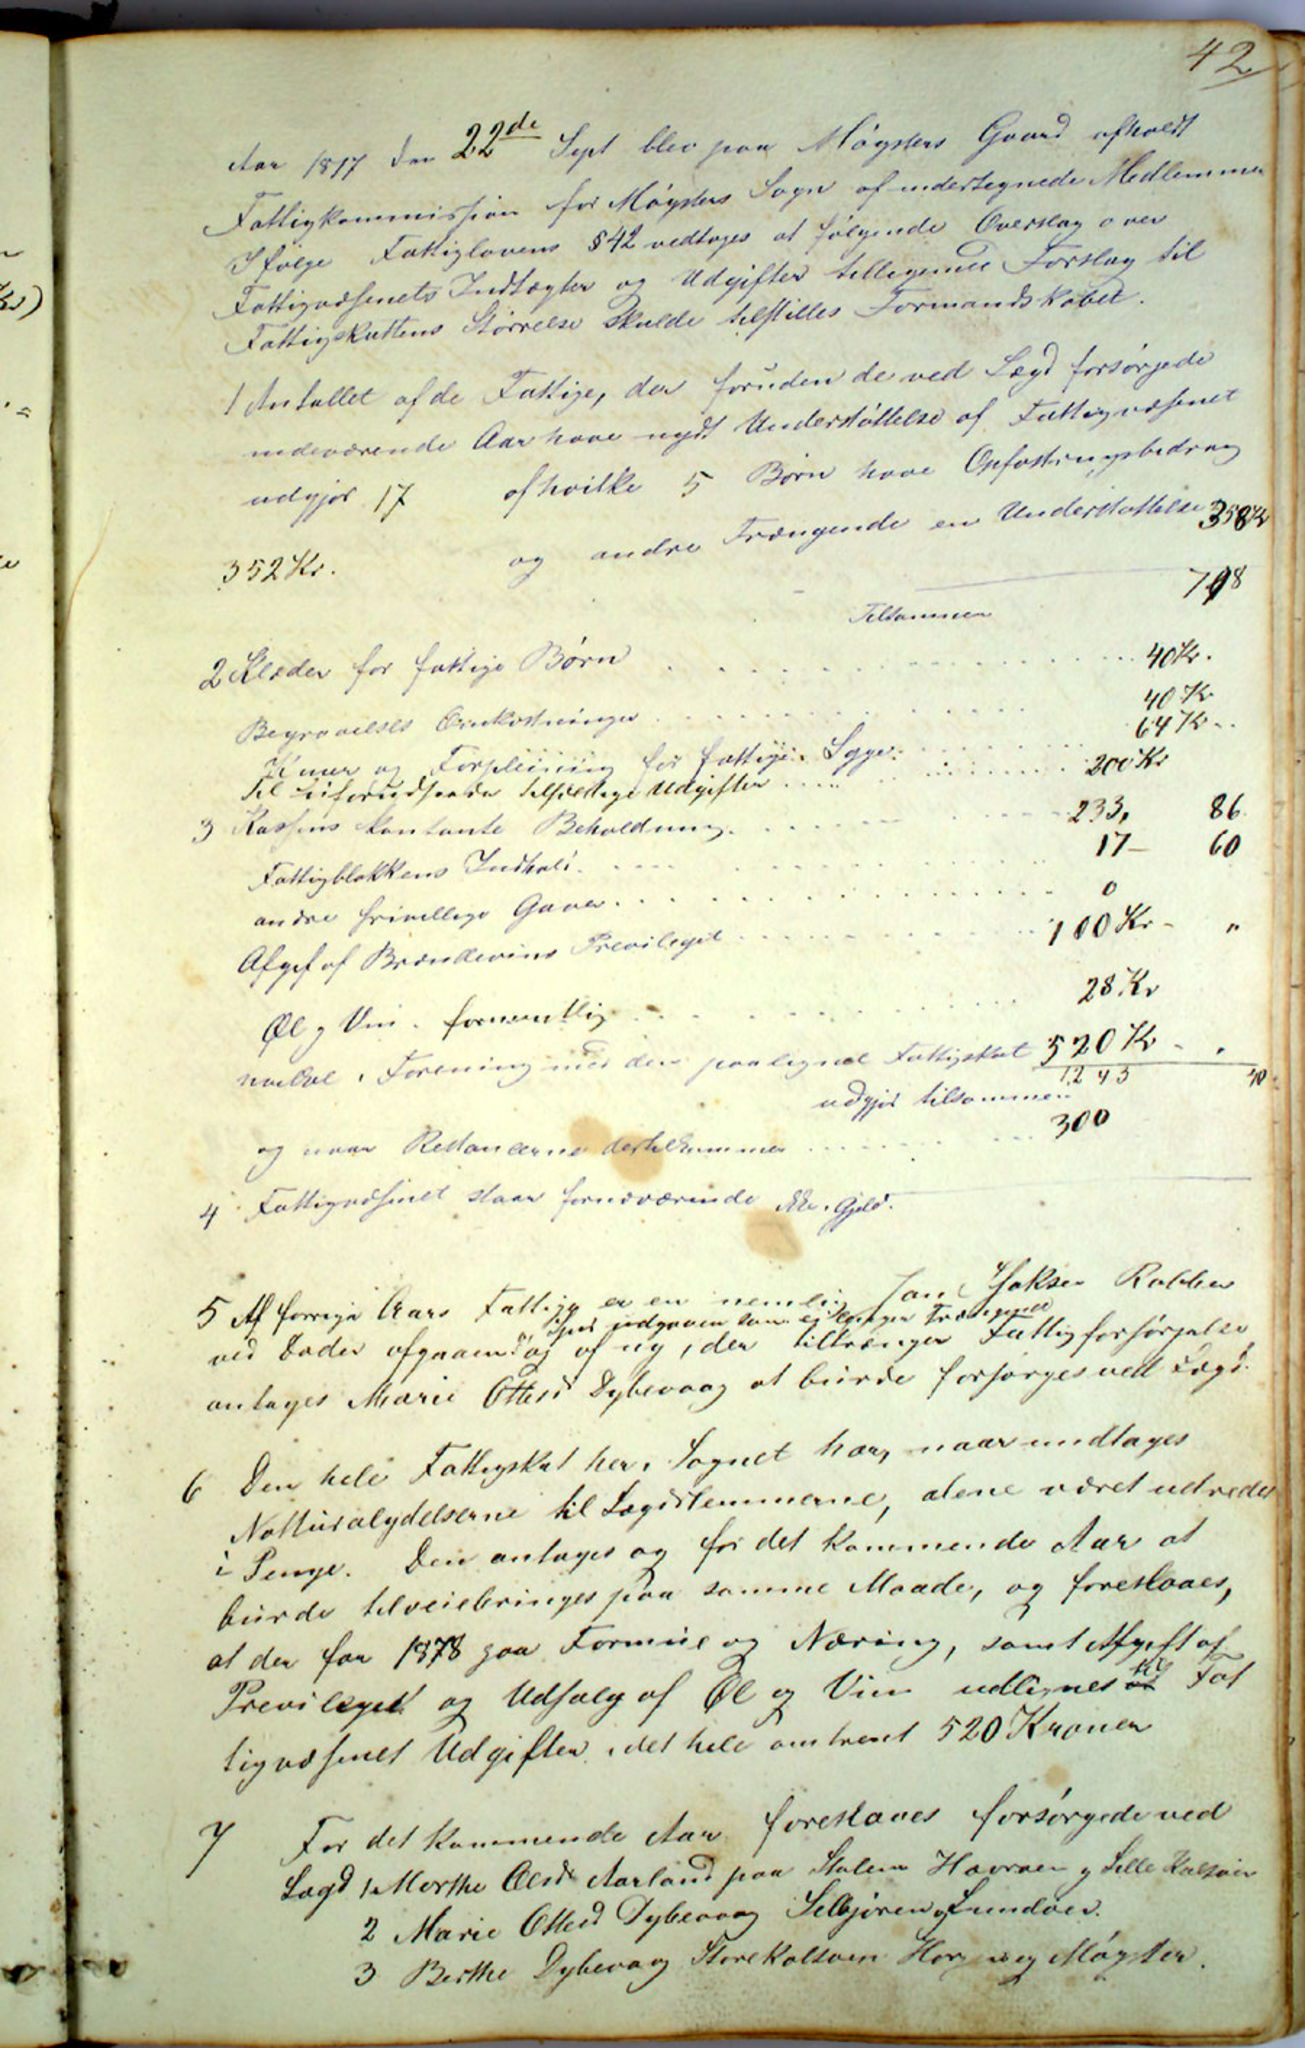 42
Aar 1877 den 22de Sept blev paa Møgsters Gaard afholdt
Fattigkommission for Møgsters Sogn af undertegnede Medlemmer
Ifølge Fattiglovens §42 vedtoges at følgende Overslag over
Fattigvæsenets Indtægter og Udgifter tilligemed Forslag til
Fattigskattens Størrelse skulde tilstilles Formandskabet.
1 Antallet af de Fattige, der foruden de ved Lægd forsørgede
indeværende Aar have nydt Understøttelse af Fattigvæsenet
udgjør 17 af hvilke 5 Børn have Opfostringsbidrag
352 Kr. og andre Trængende en Understøttelse 358 Kr
Tilsammen 718
2 Klæder for fattige Børn 40 Kr.
Begravelses Omkostninger 40 Kr
Kuur og Forpleining for fattige Syge 64 Kr
Til uforudseede tilfældige Udgifter 200 Kr
3 Kassens kontante Beholdning 233, 86
Fattigblokkens Indhold 17 - 60
andre frivillige Gaver 0
Afgift af Brændevins Previleget 100 Kr - "
Øl og Vin formentlig 28 Kr
hvilket i Forening med den paalignede Fattigskat 520 Kr - "
udgjør tilsammen 1243 40
og naar Restancerne dertilkommer 300
4 Fattigvæsenet staar fornærværende ikke i Gjeld.
5 Af forrige Aars Fattige er en nemlig Jan Isaksen Rabben
udgaaen som ej længer Trængende
ved Døden afgaaen og af ny, der tiltrænger Fattigforsørgelse
antages Marie Ottesd Dybevaag at burde forsørges ved Lægd.
6 Den hele Fattigskat her i Sognet har, naar undtages
Natturalydelserne til Lægdslemmerne, alene været udredet
i Penge. Den antages og for det kommende Aar at
burde tilveiebringes paa samme Maade, og foreslaaes,
at der for 1878 paa Formue og Næring, samt Afgift af
Previleget og Udsalg af Øl og Vin udlignes til Fat
tigvæsenet Udgifter i det hele omtrent 520 Kroner
7 For det kommende Aar foreslaaes forsørgede ved
Lægd 1 Merthe Olsd Aarland paa Stolene Hevrøen og Lille Kalsøen
2 Marie Ottesd Dybevaag Selbjøren og Lundøen.
3 Berthe Dybevaag Store Kalsøen Horgen og Møgster.